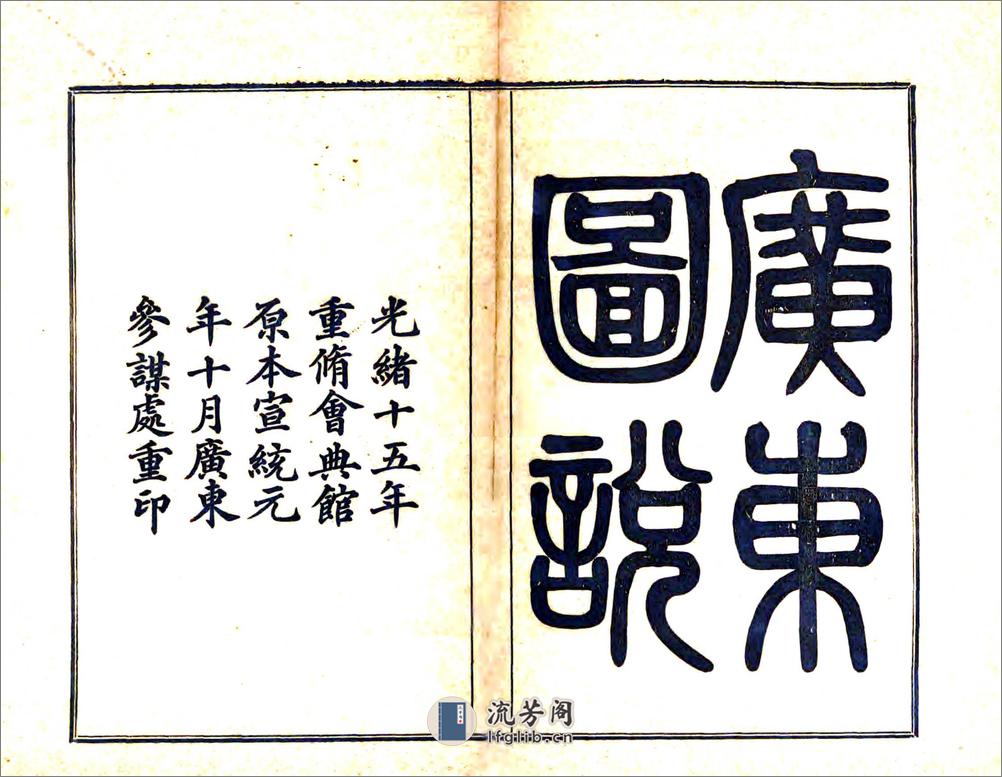 廣東
圖說
光緒十五年
重脩會典館
原本宣統元
年十月廣東
參謀處重印
流芳阁
lfglib.cn